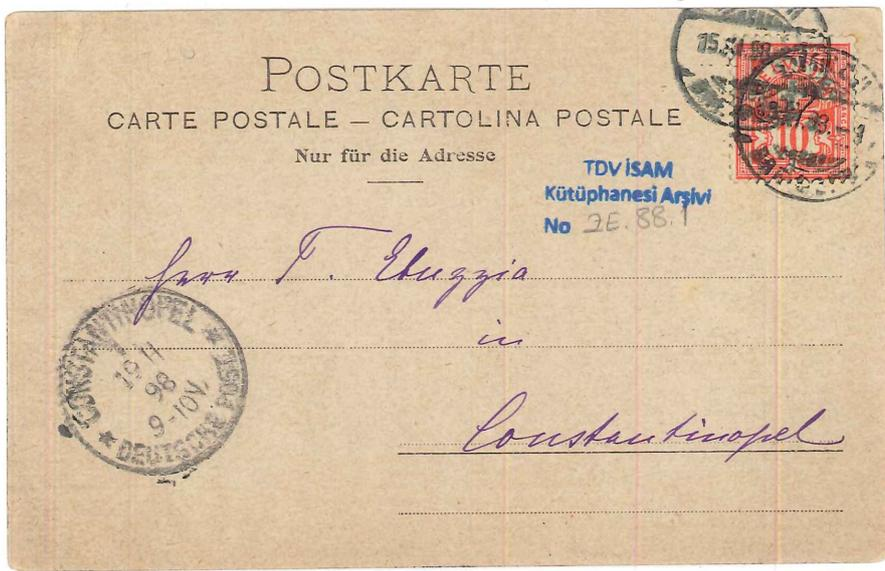 POSTKARTE
CARTE POSTALE — CARTOLINA POSTALE
Nur für die Adresse
TDV İSAM
Kütüphanesi Arşivi
No ZE.88.1
10
Herr T. Ebuzzia
in
Constantinopel
CONSTANTINOPEL
19 11
98
9-10V.
DEUTSCHE POST